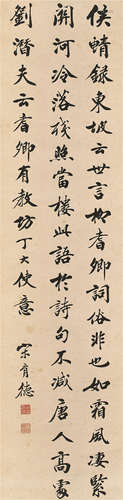 侯鲭錄東坡云世言柳耆卿詞俗非也如霜風凄緊
關河冷落殘照當樓此語於詩句不減唐人高處
劉潛夫云耆卿有教坊丁大使意
宋育德